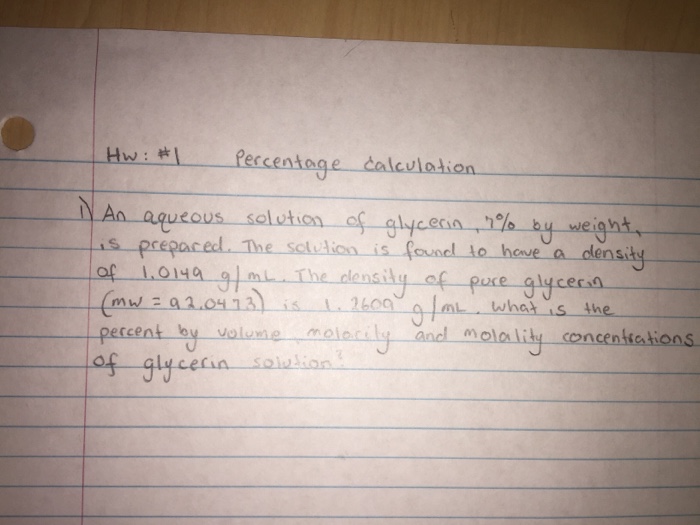 Hw: #1 Percentage Calculation
1) An aqueous solution of glycerin, 7% by weight,
is prepared. The solution is found to have a density
of 1.0149 g/mL. The density of pure glycerin
(mw = 92.0473) is 1.2609 g/mL. What is the
percent by volume, molarity and molality concentrations
of glycerin solution?